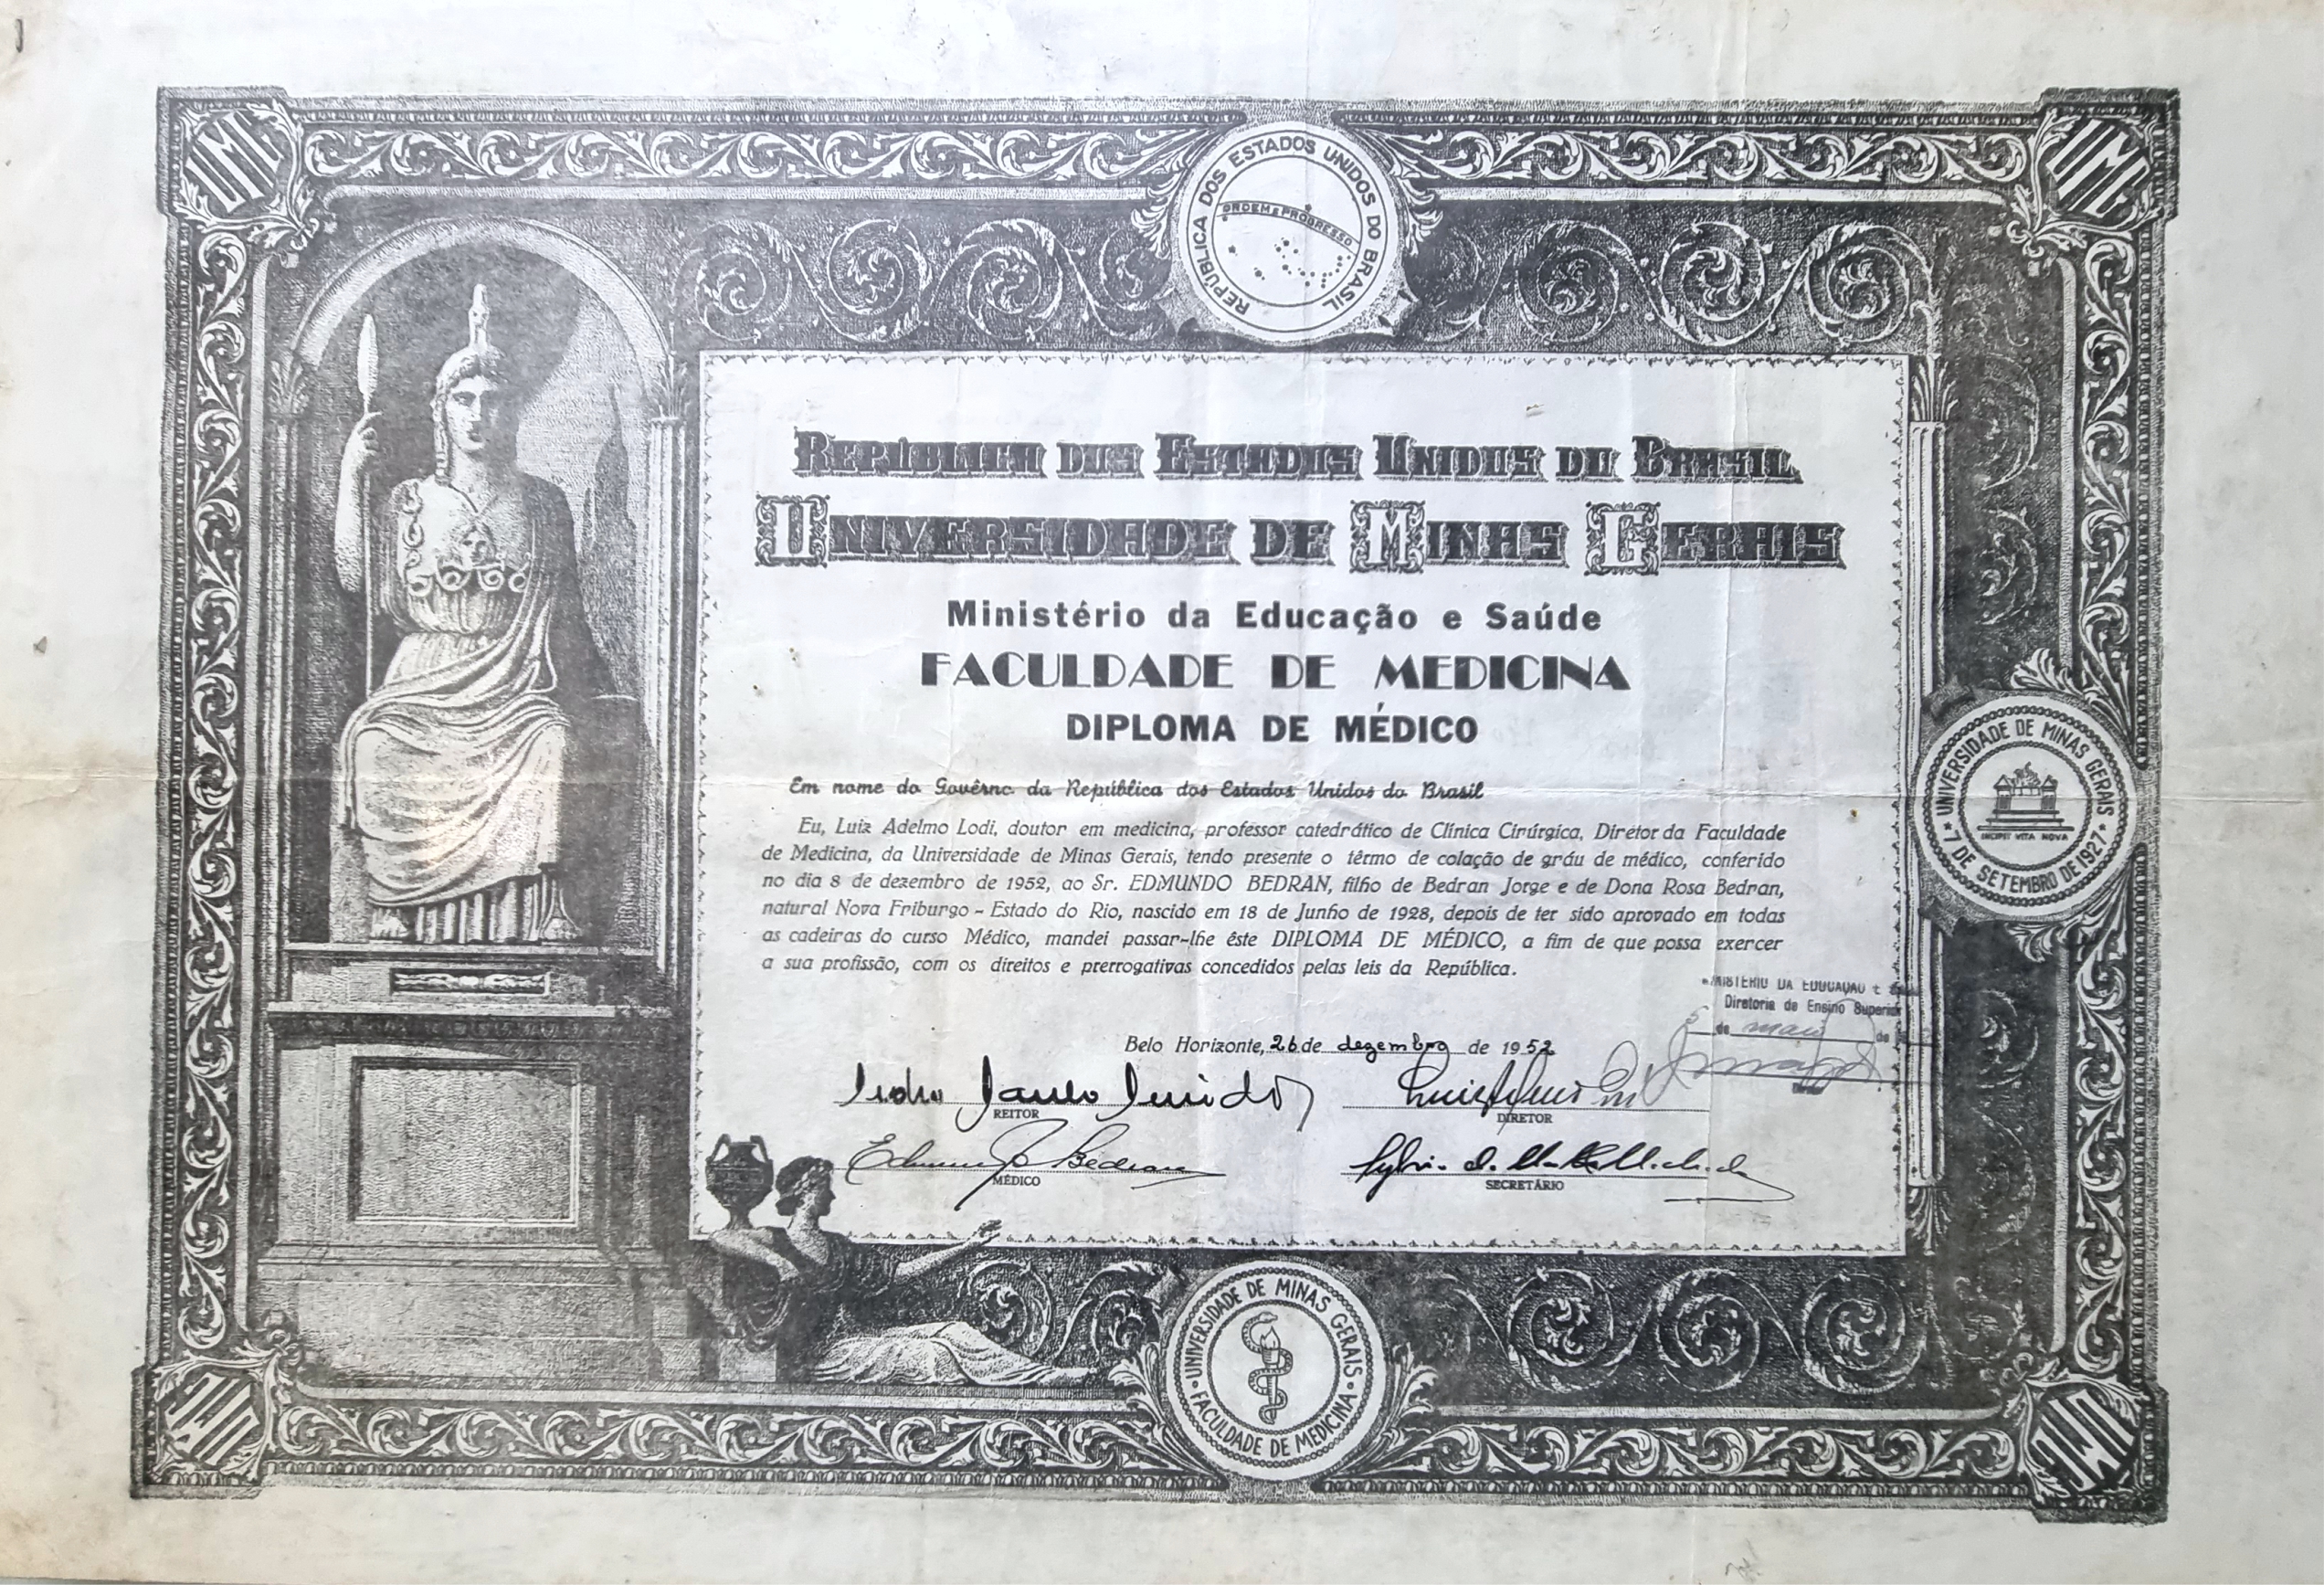 UMG
UMG
REPÚBLICA DOS ESTADOS UNIDOS DO BRASIL
ORDEM E PROGRESSO
REPÚBLICA DOS ESTADOS UNIDOS DO BRASIL
UNIVERSIDADE DE MINAS GERAIS
Ministério da Educação e Saúde
FACULDADE DE MEDICINA
DIPLOMA DE MÉDICO
Em nome do Govêrno da República dos Estados Unidos do Brasil
Eu, Luiz Adelmo Lodi, doutor em medicina, professor catedrático de Clínica Cirúrgica, Diretor da Faculdade
de Medicina, da Universidade de Minas Gerais, tendo presente o têrmo de colação de gráu de médico, conferido
no dia 8 de dezembro de 1952, ao Sr. EDMUNDO BEDRAN, filho de Bedran Jorge e de Dona Rosa Bedran,
natural Nova Friburgo - Estado do Rio, nascido em 18 de Junho de 1928, depois de ter sido aprovado em todas
as cadeiras do curso Médico, mandei passar-lhe êste DIPLOMA DE MÉDICO, a fim de que possa exercer
a sua profissão, com os direitos e prerrogativas concedidos pelas leis da República.
MINISTÉRIO DA EDUCAÇÃO E
Diretoria de Ensino Superior
5 de maio de
Belo Horizonte, 26 de dezembro de 1952
REITOR
DIRETOR
Edmundo Bedran
MÉDICO
SECRETÁRIO
UNIVERSIDADE DE MINAS GERAIS
INCIPIT VITA NOVA
7 DE SETEMBRO DE 1927
UNIVERSIDADE DE MINAS GERAIS
FACULDADE DE MEDICINA
UMG
UMG